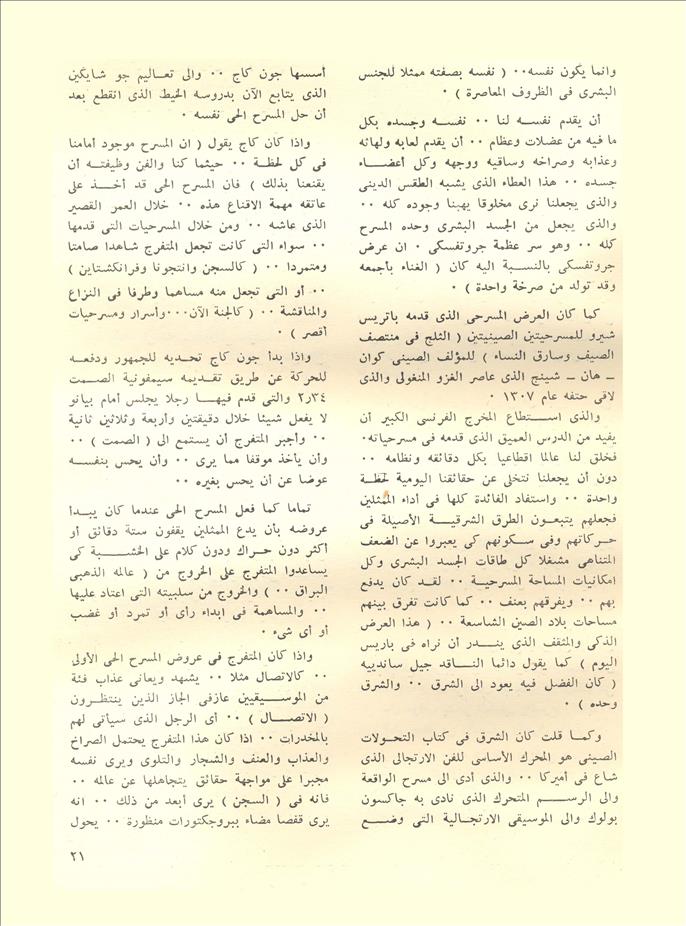 وانما يكون نفسه٠٠ ( نفسه بصفته ممثلا للجنس
البشرى فى الظروف المعاصرة ) ٠
أن يقدم نفســه لنا ٠٠ نفســه وجسده بكل
ما فيه من عضلات وعظام ٠٠ أن يقدم لعابه ولهاثه
وعذابه وصراخه وساقيه ووجهه وكل أعضــاء
جسده ٠٠ هذا العطاء الذى يشبه الطقس الدينى
والذى يجعلنا نرى مخلوقا يهبنا وجوده كله ٠٠
والذى يجعل من الجسد البشرى وحده المسرح
كله ٠٠ وهو سر عظمة جروتفسكى ٠ ان عرض
جروتفسكى بالنسـبة اليه كان ( الغناء بأجمعه
وقد تولد من صرخة واحدة ) ٠
كما كان العرض المسرحى الذى قدمه باتريس
شيرو للمسرحيتين الصينيتين ( الثلج فى منتصف
الصيف وسارق النساء ) للمؤلف الصينى كوان
ـ هان ـ شينج الذى عاصر الغزو المنغولى والذى
لاقى حتفه عام ١٣٠٧ ٠
والذى اســتطاع المخرج الفرنسى الكبير أن
يفيد من الدرس العميق الذى قدمه فى مسرحياته٠
فخلق لنا عالما اقطاعيا بكل دقائقه ونظامه ٠٠
دون أن يجعلنا نتخلى عن حقائقنا اليومية لحظـة
واحدة ٠٠ واستفاد الفائدة كلها فى أداء الممثلين
فجعلهم يتبعـون الطرق الشرقيــة الأصيلة فى
حـركاتهم وفى سـكونهم كى يعبروا عن الضعف
المتناهى مشغلا كل طاقات الجسد البشرى وكل
امكانيات المساحة المسرحيـة ٠٠ لقـد كان يدفع
بهم ٠٠ ويفرقهم بعنف ٠٠ كما كانت تفرق بينهم
مساحات بلاد الصين الشاسعة ٠٠ ( هذا العرض
الذكى والمثقف الذى ينــدر أن نراه فى باريس
اليوم ) كما يقول دائما النـاقد جيل ساندييه
( كان الفضل فيه يعود الى الشرق ٠٠ والشرق
وحده ) ٠
وكمـا قلت كان الشرق فى كتاب التحـولات
الصينى هو المحرك الأساسى للفن الارتجالى الذى
شاع فى أميركا ٠٠ والذى أدى الى مسرح الواقعة
والى الرســم المتحرك الذى نادى به جاكسون
بولوك والى الموسيقى الارتجـالية التى وضـع
أسسها جون كاج ٠٠ والى تعـاليم جو شايكين
الذى يتابع الآن بدروسه الخيط الذى انقطع بعد
أن حل المسرح الحى نفسه ٠
واذا كان كاج يقول ( ان المسرح موجود أمامنا
فى كل لحظـة ٠٠ حيثما كنا والفن وظيفتـه أن
يقنعنا بذلك ) فان المسرح الحى قد أخـذ على
عاتقه مهمة الاقناع هذه ٠٠ خلال العمر القصير
الذى عاشه ٠٠ ومن خلال المسرحيات التى قدمها
٠٠ سواء التى كانت تجعل المتفرج شاهدا صامتا
ومتمردا ٠٠ ( كالسجن وانتجونا وفرانكشتاين )
٠٠ أو التى تجعل منه مساهما وطرفا فى النزاع
والمناقشة ٠٠ ( كالجنة الآن٠٠٠وأسرار ومسرحيات
أقصر ) ٠
واذا بدأ جون كاج تحديه للجمهور ودفعـه
للحركة عن طريق تقديمه سيمفونية الصـمت
٢٫٣٤ والتى قدم فيهـا رجلا يجلس أمام بيانو
لا يفعل شيئا خلال دقيقتين وأربعة وثلاثين ثانية
٠٠ وأجبر المتفرج أن يستمع الى ( الصمت ) ٠٠
وأن يأخذ موقفا مما يرى ٠٠ وأن يحس بنفسـه
عوضا عن أن يحس بغيره ٠٠
تماما كما فعل المسرح الحى عندما كان يبـدأ
عروضه بأن يدع الممثلين يقفون ستة دقائق أو
أكثر دون حراك ودون كلام على الخشــبة كى
يساعدوا المتفرج على الخروج من ( عالمه الذهبى
البراق ٠٠ ) والخروج من سلبيته التى اعتاد عليها
٠٠ والمساهمة فى ابداء رأى أو تمرد أو غضب
أو أى شىء ٠
واذا كان المتفرج فى عروض المسرح الحى الأولى
٠٠ كالاتصال مثلا ٠٠ يشهد ويعانى عذاب فئة
من الموسـيقيين عازفى الجاز الذين ينتظـرون
( الاتصــال ) ٠٠ أى الرجل الذى سيأتى لهم
بالمخدرات ٠٠ اذا كان هذا المتفرج يحتمل الصراخ
والعذاب والعنف والشجار والتلوى ويرى نفسه
مجبرا على مواجهة حقائق يتجاهلها عن عالمه ٠٠
فانه فى ( السجن ) يرى أبعد من ذلك ٠٠ انه
يرى قفصا مضاء ببروجكتورات منظورة ٠٠ يحول
٢١